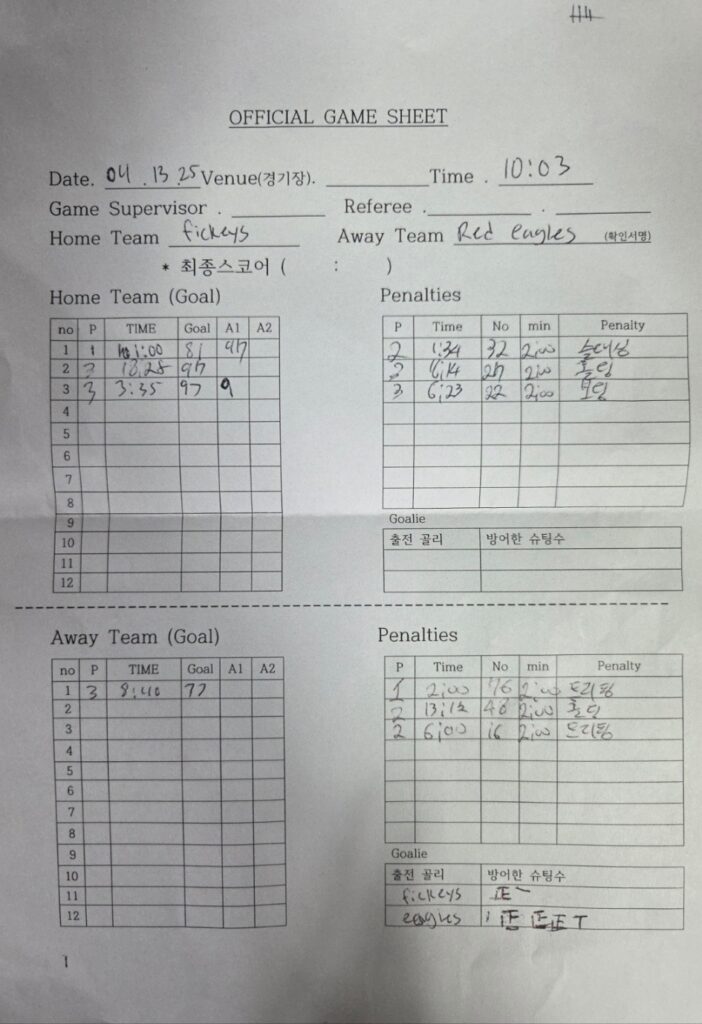 H4
OFFICIAL GAME SHEET
Date. 04 . 13 . 25 Venue(경기장). Time . 10:03
Game Supervisor . Referee . .
Home Team fickeys Away Team Red eagles (확인서명)
* 최종스코어 ( : )
Home Team (Goal)
no P TIME Goal A1 A2
1 1 1:00 81 97
2 2 13:28 97
3 3 3:35 97 9
4
5
6
7
8
9
10
11
12
Penalties
P Time No min Penalty
2 1:34 32 2;00
2 27 2;00 홀딩
3 6;23 22 2;00
Goalie
출전 골리 방어한 슈팅수
Away Team (Goal)
no P TIME Goal A1 A2
1 3 8:40 77
2
3
4
5
6
7
8
9
10
11
12
Penalties
P Time No min Penalty
1 2;00 76 2;00 트리핑
2 13;12 48 2;00 홀딩
2 6;00 16 2;00 트리핑
Goalie
출전 골리 방어한 슈팅수
fickeys 正 一
eagles 正 正 正 T
1